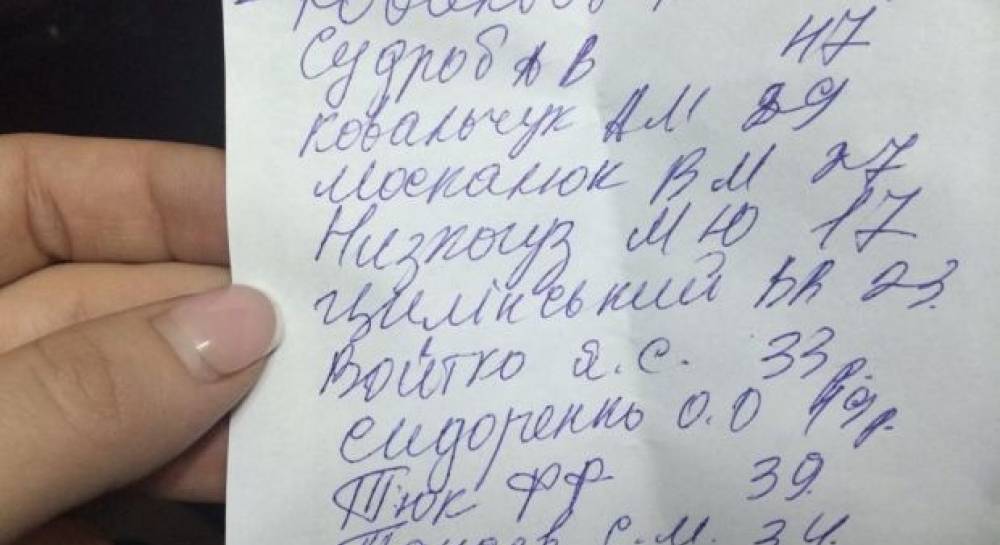 Судроб А В 47
Ковальчук А М 29
Москанюк В М 27
Низкогуз М Ю 17
Цилінський ВВ 23.
Войтко Я. С. 33
Сидоренко О. О
Тюк ФФ 39.
С. М. 34.